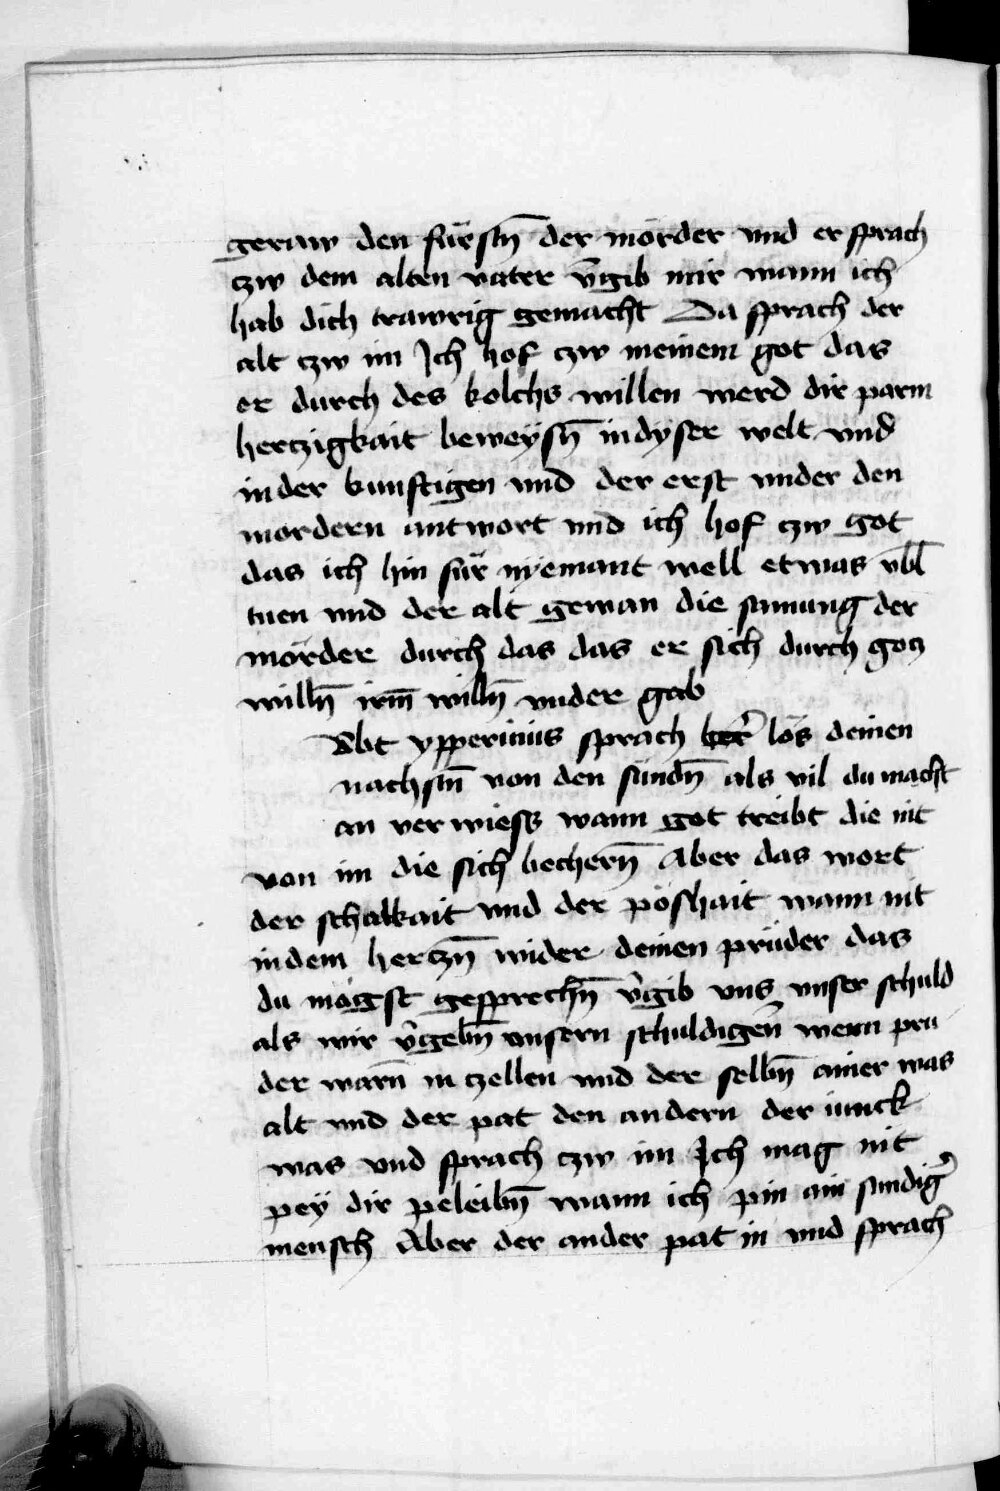 geraw den fürstn̄ der mörder vnd er sprach
czw dem alten vater v̄gib mir wann ich
hab dich trawrig gemacht Da sprach der
alt czw im Ich hof czw meinem got das
er durch des kolchs willen werd dir parm
herczigkait beweÿsn̄ in dyser welt vnd
in der kunftigen vnd der erst vnder den
mordern antwort vnd ich hof czw got
das ich hin für nÿemant well etwas v̄bl
tuen vnd der alt gewan die samung der
mörder durch das das er sich durch gocz
willn̄ irm̄ willn̄ vnder gab
Abt yppericius sprach lös deinen
nachstn̄ von den sündn̄ als vil du machst
an verwiess wann got treibt die nit
von im die sich bechern̄ Aber das wort
der schalkait vnd der pöshait wann nit
in dem herczn̄ wider deinen prüder das
du mögst gesprechn̄ v̄gib vns vnser schuld
als wir v̄gebn̄ vnsern schuldigen̄ wenn prü
der warn̄ in czellen vnd der selbn̄ ainer was
alt vnd der pat den andern der iunck
was vnd sprach czw im Ich mag nit
peÿ dir peleibn̄ wann ich pin ain sundig̉
mensch Aber der ander pat in vnd sprach